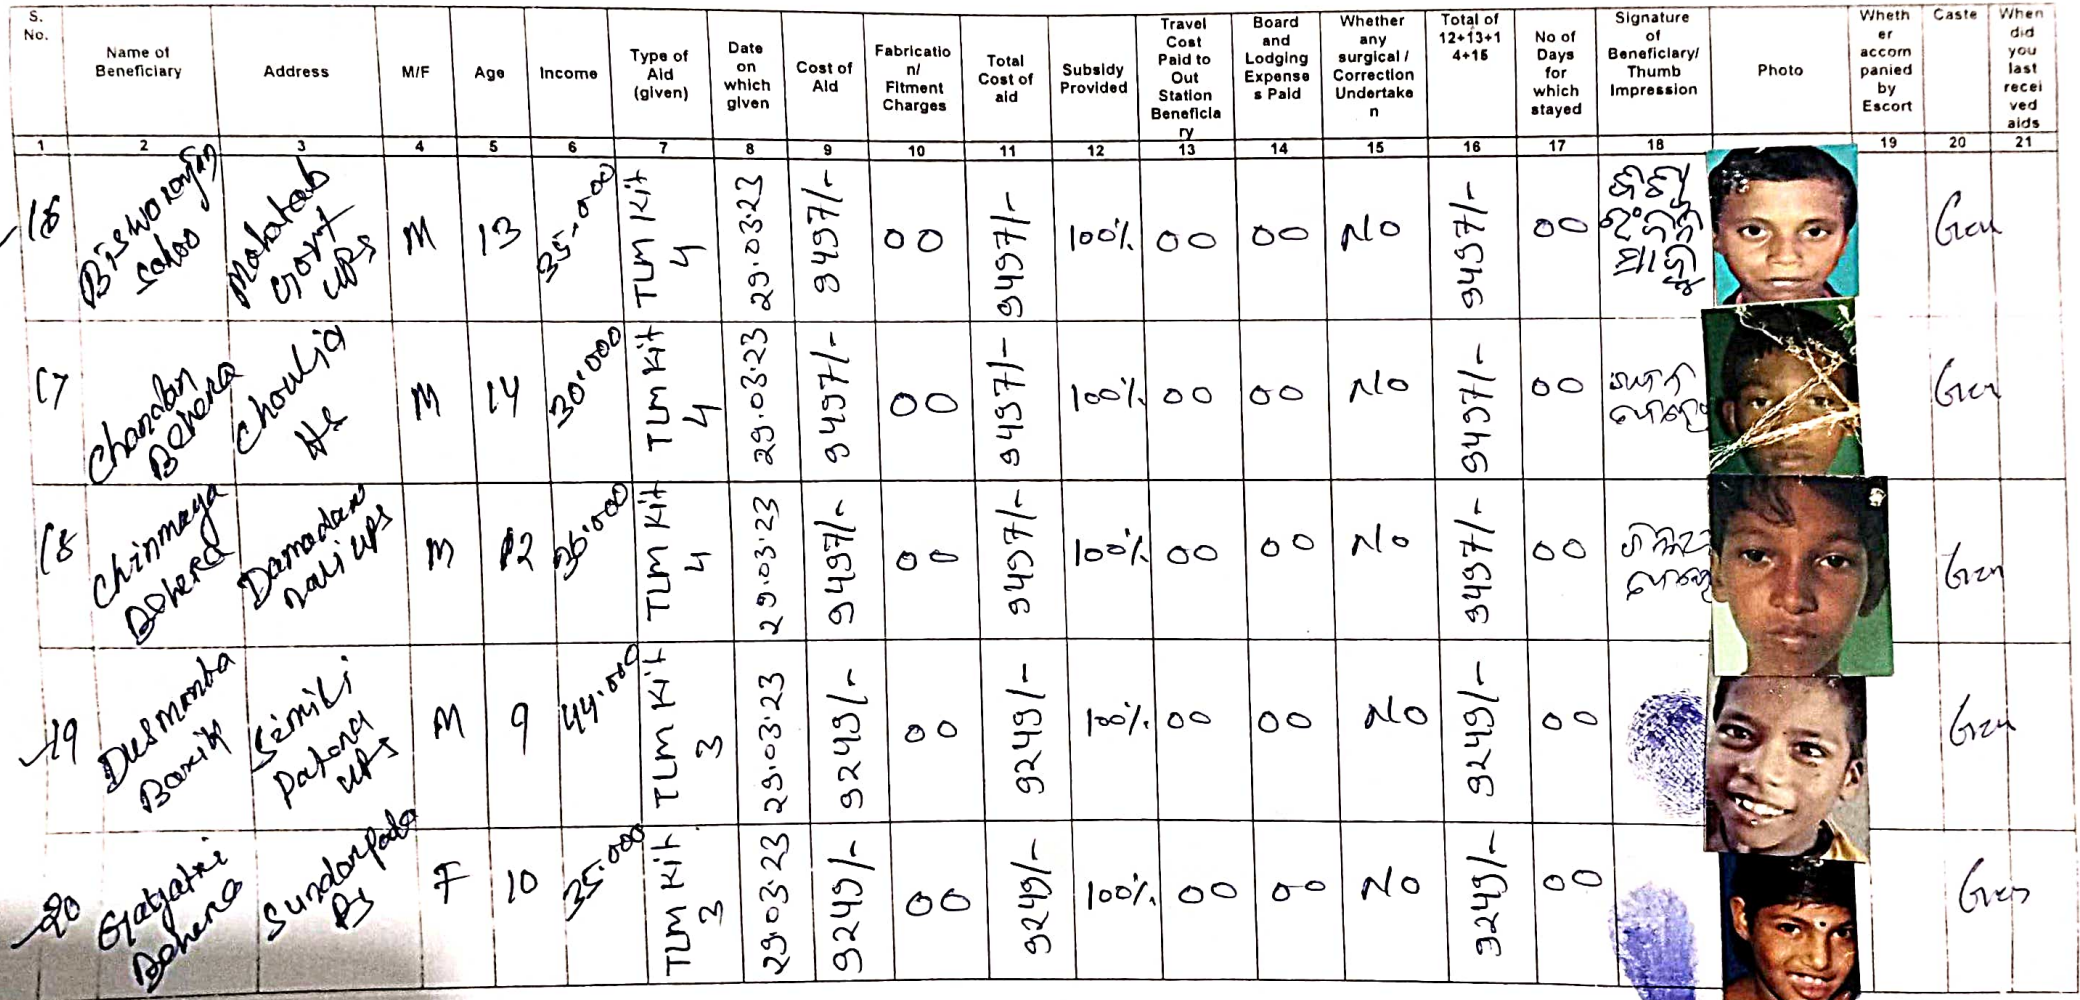 S. No.
Name of Beneficiary
Address
M/F
Age
Income
Type of Aid (given)
Date on which given
Cost of Aid
Fabricatio n/ Fitment Charges
Total Cost of aid
Subsidy Provided
Travel Cost Paid to Out Station Beneficia ry
Board and Lodging Expense s Paid
Whether any surgical / Correction Undertake n
Total of 12+13+1 4+15
No of Days for which stayed
Signature of Beneficiary/ Thumb Impression
Photo
Wheth er accom panied by Escort
Caste
When did you last recei ved aids
1 2 3 4 5 6 7 8 9 10 11 12 13 14 15 16 17 18 19 20 21
16 Biswaranjan Sahoo UPS M 13 35.000 TLM Kit 4 29.03.23 9497/- 00 9497/- 100% 00 00 No 9497/- 00 Gen
17 Chandan Behera Choulia HS M 14 30.000 TLM Kit 4 29.03.23 9497/- 00 9497/- 100% 00 00 No 9497/- 00 Gen
18 Chinmaya Behera UPS M 12 36.000 TLM Kit 4 29.03.23 9497/- 00 9497/- 100% 00 00 No 9497/- 00 Gen
19 Dusmanta Barik Simili Patana UPS M 9 44.000 TLM Kit 3 29.03.23 9249/- 00 9249/- 100% 00 00 No 9249/- 00 Gen
20 Gayatri Behera Sundarpada PS F 10 35.000 TLM Kit 3 29.03.23 9249/- 00 9249/- 100% 00 00 No 9249/- 00 Gen